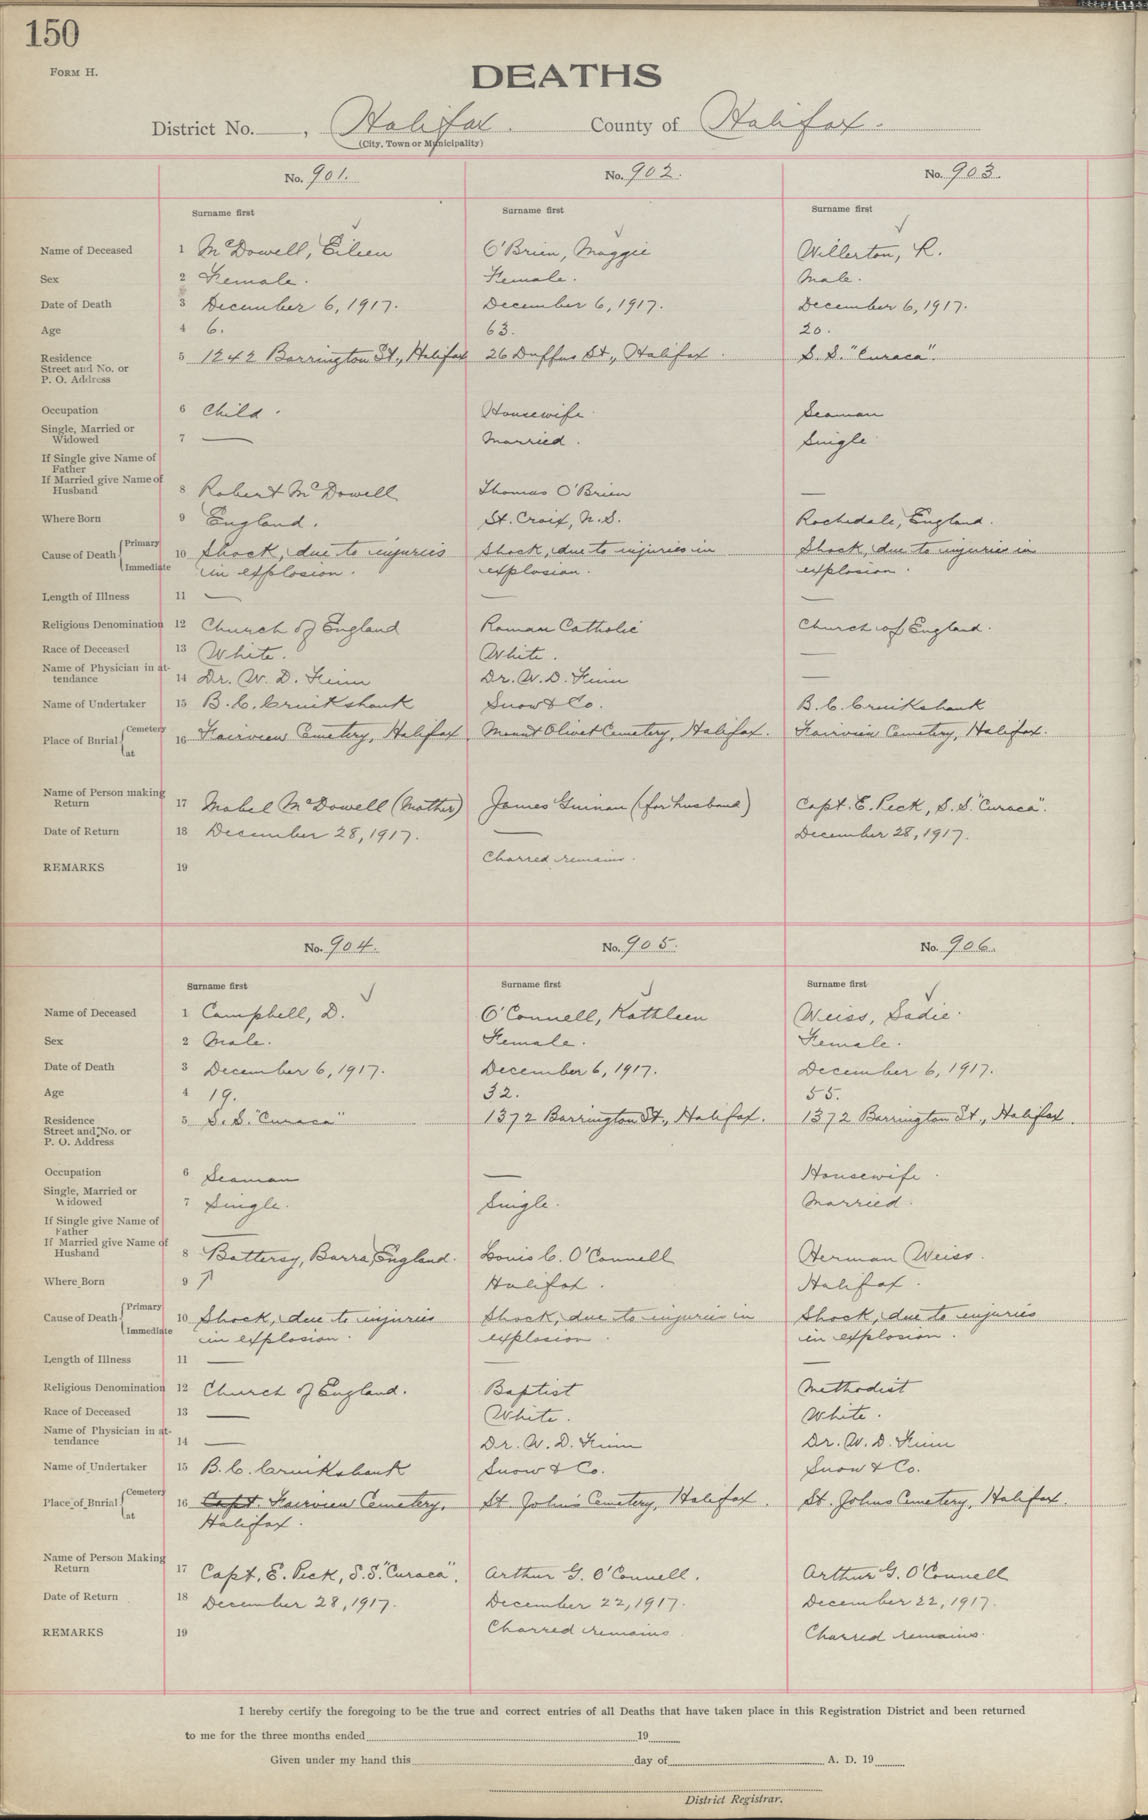 150
FORM H.
DEATHS
District No. , Halifax. County of Halifax.
(City, Town or Municipality)
No. 901. No. 902. No. 903.
Surname first Surname first Surname first
Name of Deceased 1 McDowell, Eileen O'Brien, Maggie Willerton, R.
Sex 2 Female. Female. Male.
Date of Death 3 December 6, 1917. December 6, 1917. December 6, 1917.
Age 4 6. 63. 20.
Residence Street and No. or P. O. Address 5 1242 Barrington St., Halifax 26 Duffus St., Halifax. S. S. "Curaca".
Occupation 6 Child. Housewife Seaman
Single, Married or Widowed 7 — Married. Single
If Single give Name of Father
If Married give Name of Husband 8 Robert McDowell Thomas O'Brien —
Where Born 9 England. St. Croix, N.S. Rochdale, England.
Cause of Death { Primary Immediate 10 Shock, due to injuries Shock, due to injuries in Shock, due to injuries in
in explosion. explosion. explosion.
Length of Illness 11 — — —
Religious Denomination 12 Church of England Roman Catholic Church of England.
Race of Deceased 13 White. White. —
Name of Physician in attendance 14 Dr. W. D. Finn Dr. W. D. Finn —
Name of Undertaker 15 B. C. Cruikshank Snow & Co. B. C. Cruikshank
Place of Burial { Cemetery at 16 Fairview Cemetery, Halifax. Mount Olivet Cemetery, Halifax. Fairview Cemetery, Halifax.
Name of Person making Return 17 Mabel McDowell (Mother) James Guinan (for husband) Capt. E. Peck, S.S. "Curaca".
Date of Return 18 December 28, 1917. — December 28, 1917.
REMARKS 19 Charred remains.
No. 904. No. 905. No. 906.
Surname first Surname first Surname first
Name of Deceased 1 Campbell, D. O'Connell, Kathleen Weiss, Sadie.
Sex 2 Male. Female. Female.
Date of Death 3 December 6, 1917. December 6, 1917. December 6, 1917.
Age 4 19. 32. 55.
Residence Street and No. or P. O. Address 5 S. S. "Curaca" 1372 Barrington St., Halifax. 1372 Barrington St., Halifax.
Occupation 6 Seaman — Housewife.
Single, Married or Widowed 7 Single. Single. Married.
If Single give Name of Father
If Married give Name of Husband 8 Battersy, Barra, England. Louis C. O'Connell Herman Weiss.
Where Born 9 Halifax. Halifax.
Cause of Death { Primary Immediate 10 Shock, due to injuries Shock, due to injuries in Shock, due to injuries
in explosion. explosion. in explosion.
Length of Illness 11 — — —
Religious Denomination 12 Church of England. Baptist Methodist
Race of Deceased 13 — White. White.
Name of Physician in attendance 14 — Dr. W. D. Finn Dr. W. D. Finn
Name of Undertaker 15 B. C. Cruikshank Snow & Co. Snow & Co.
Place of Burial { Cemetery at 16 Capt. Fairview Cemetery, St. John's Cemetery, Halifax. St. Johns Cemetery, Halifax.
Halifax.
Name of Person Making Return 17 Capt. E. Peck, S.S. "Curaca". Arthur G. O'Connell. Arthur G. O'Connell
Date of Return 18 December 28, 1917. December 22, 1917. December 22, 1917.
REMARKS 19 Charred remains Charred remains.
I hereby certify the foregoing to be the true and correct entries of all Deaths that have taken place in this Registration District and been returned
to me for the three months ended 19
Given under my hand this day of A. D. 19
District Registrar.